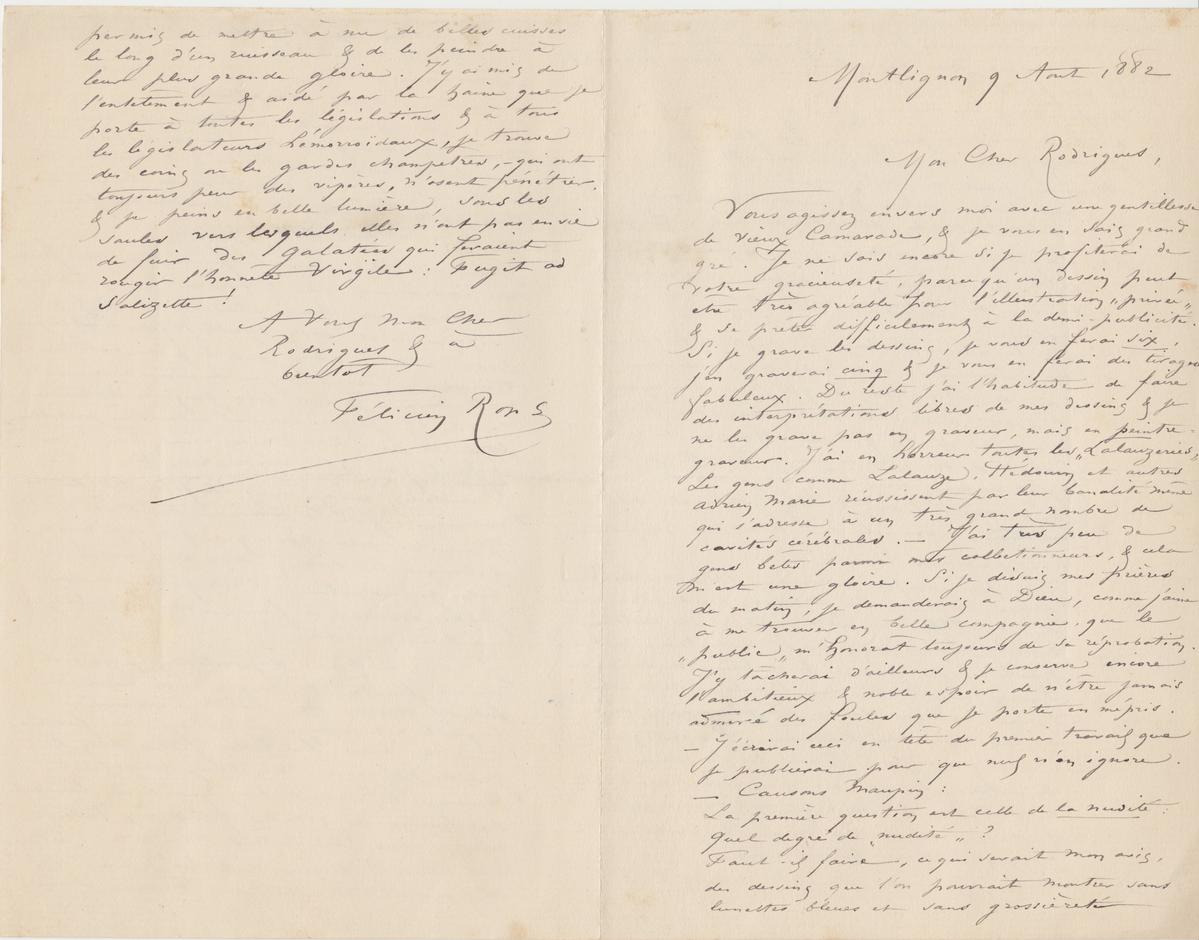 Montlignon 9 Aout 1882
Mon Cher Rodrigues,
Vous agissez envers moi avec une gentillesse
de vieux Camarade, & je vous en sais grand
gré. Je ne sais encore si je profiterai de
votre gracieuseté, parcequ'un dessin peut
etre très agréable pour l'illustration „privée„
& se prêter difficilement à la demi-publicité.
Si je grave les dessins, je vous en ferai six,
j'en graverai cinq & je vous en ferai des tirages
fabuleux. Du reste j'ai l'habitude de faire
des interprétations libres de mes dessins & je
ne les grave pas en graveur, mais en peintre-
graveur. J'ai en horreur toutes les „Lalauzeries„
Les gens comme Lalauze, Hédouin et autres
Adrien Marie réussissent par leur banalité même
qui s'adresse à un très grand nombre de
cavités cérébrales. — J'ai très peu de
gens bêtes parmi mes collectionneurs, & cela
m'est une gloire. Si je disais mes prières
du matin, je demanderais à Dieu, comme j'aime
à me trouver en belle compagnie, que le
„public„ m'honorat toujours de sa réprobation.
J'y tâcherai d'ailleurs & je conserve encore
l'ambitieux & noble espoir de n'être jamais
admiré des foules que je porte en mépris.
— J'écrirai ceci en tête du premier travail que
je publierai pour que nul n'en ignore.
— Causons Maupin :
La première question est celle de la nudité :
Quel degré de „nudité„ ?
Faut-il faire, ce qui serait mon avis,
des dessins que l'on pourrait montrer sans
lunettes bleues et sans grossièreté
permis de mettre à nu de belles cuisses
le long d'un ruisseau & de les peindre à
leur plus grande gloire. J'y ai mis de
l'entêtement & aidé par la haine que je
porte à toutes les législations & à tous
les législateurs hémorroïdaux, je trouve
des coins ou les gardes champêtres, - qui ont
toujours peur des vipères, n'osent pénétrer,
& je peins en belle lumière, sous les
saules vers lesquels elles n'ont pas envie
de fuir des Galatées qui feraient
rougir l'honnête Virgile : Fugit ad
Salizette !
A Vous mon Cher
Rodrigues & à
bientot
Félicien Rops